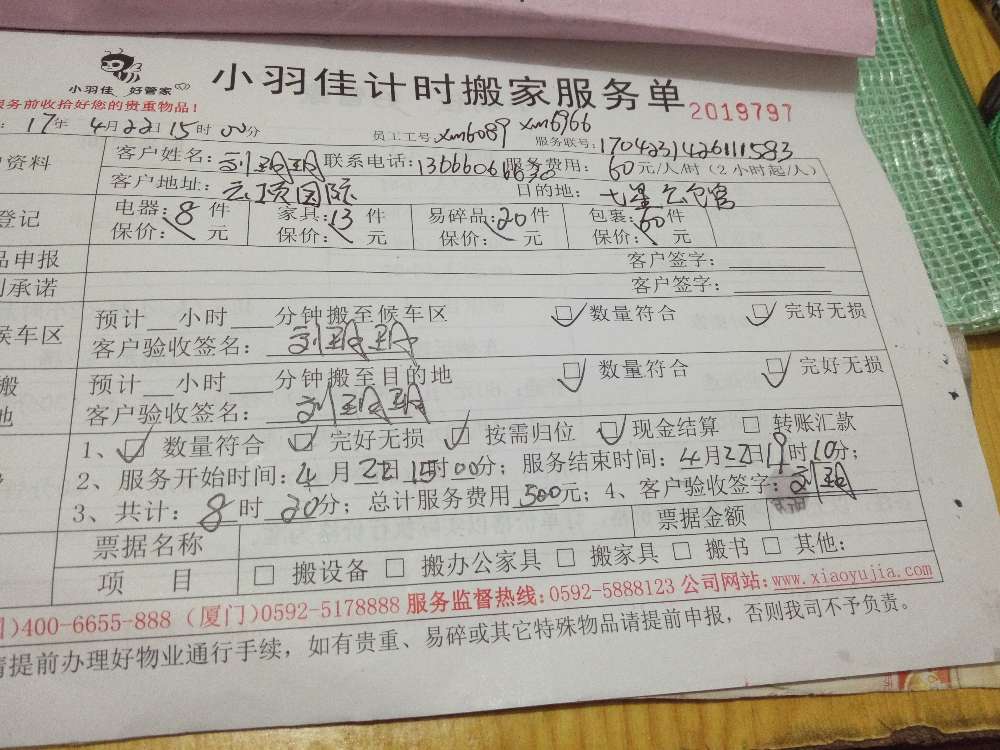 小羽佳 好管家
小羽佳计时搬家服务单 2019797
服务前收拾好您的贵重物品!
17年 4月22日15时00分 员工工号:xm6089 xm6966 服务联号:17042314261111583
资料 客户姓名: 联系电话: 服务费用: 60元/人/时(2小时起/人)
客户地址:云顶国际 目的地:七星公馆
登记 电器:8件 家具:13件 易碎品:20件 包裹:60件
保价: 元 保价: 元 保价: 元 保价: 元
品申报 客户签字:
承诺 客户签字:
候车区 预计 小时 分钟搬至候车区 ☑数量符合 ☑完好无损
客户验收签名:
搬 预计 小时 分钟搬至目的地 ☑数量符合 ☑完好无损
地 客户验收签名:
1、☑数量符合 ☑完好无损 ☑按需归位 ☑现金结算 □转账汇款
2、服务开始时间:4月22日15时00分;服务结束时间:4月22日19时10分;
3、共计:8时20分;总计服务费用500元;4、客户验收签字:
票据名称 票据金额
项 目 □ 搬设备 □ 搬办公家具 □ 搬家具 □ 搬书 □ 其他:
)400-6655-888 (厦门)0592-5178888 服务监督热线:0592-5888123 公司网站:www.xiaoyujia.com
请提前办理好物业通行手续,如有贵重、易碎或其它特殊物品请提前申报,否则我司不予负责。